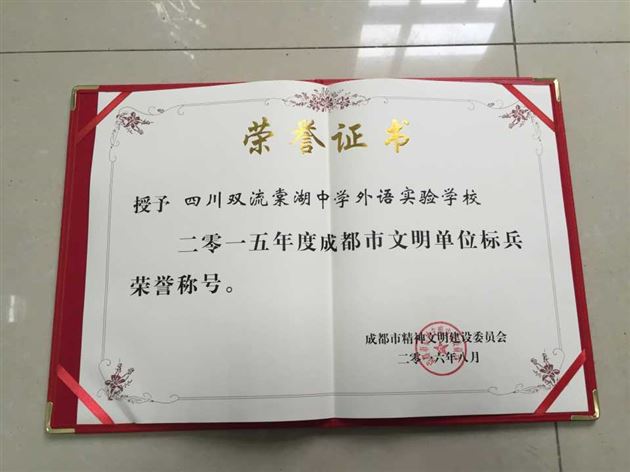 荣誉证书
授予 四川双流棠湖中学外语实验学校
二零一五年度成都市文明单位标兵
荣誉称号。
成都市精神文明建设委员会
二零一六年八月